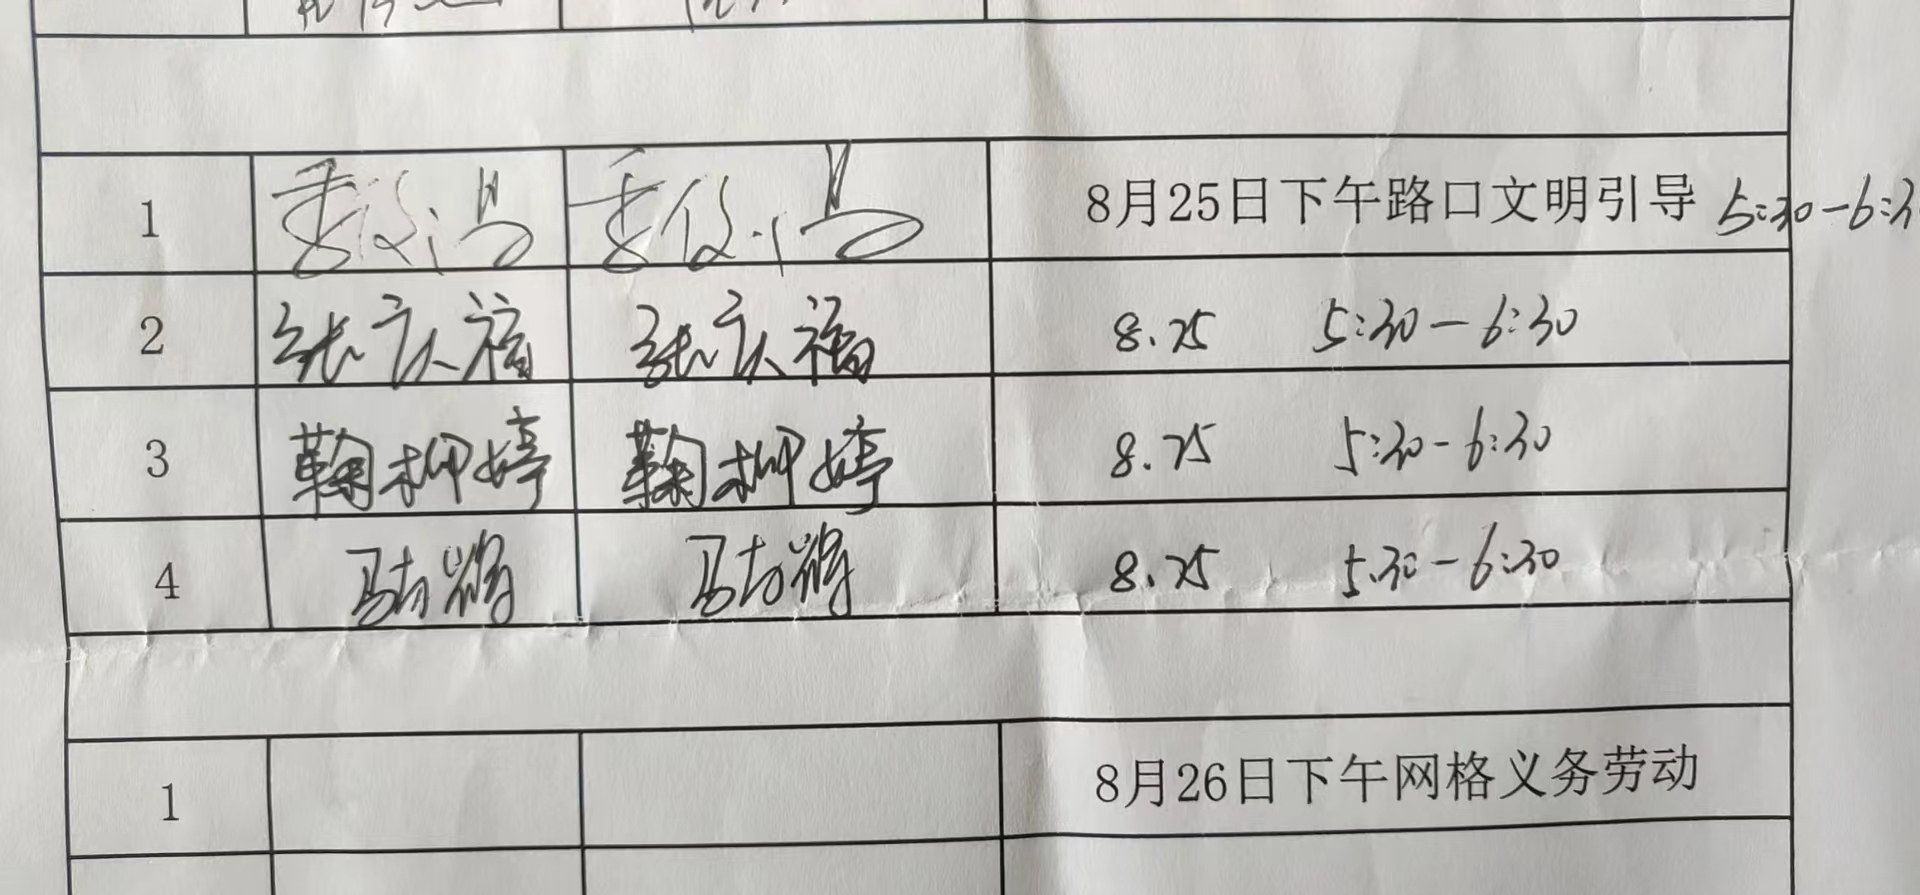 1 8月25日下午路口文明引导 5:30-6:3
2 张庆福 张庆福 8.25 5:30-6:30
3 鞠柳婷 鞠柳婷 8.25 5:30-6:30
4 8.25 5:30-6:30
1 8月26日下午网格义务劳动